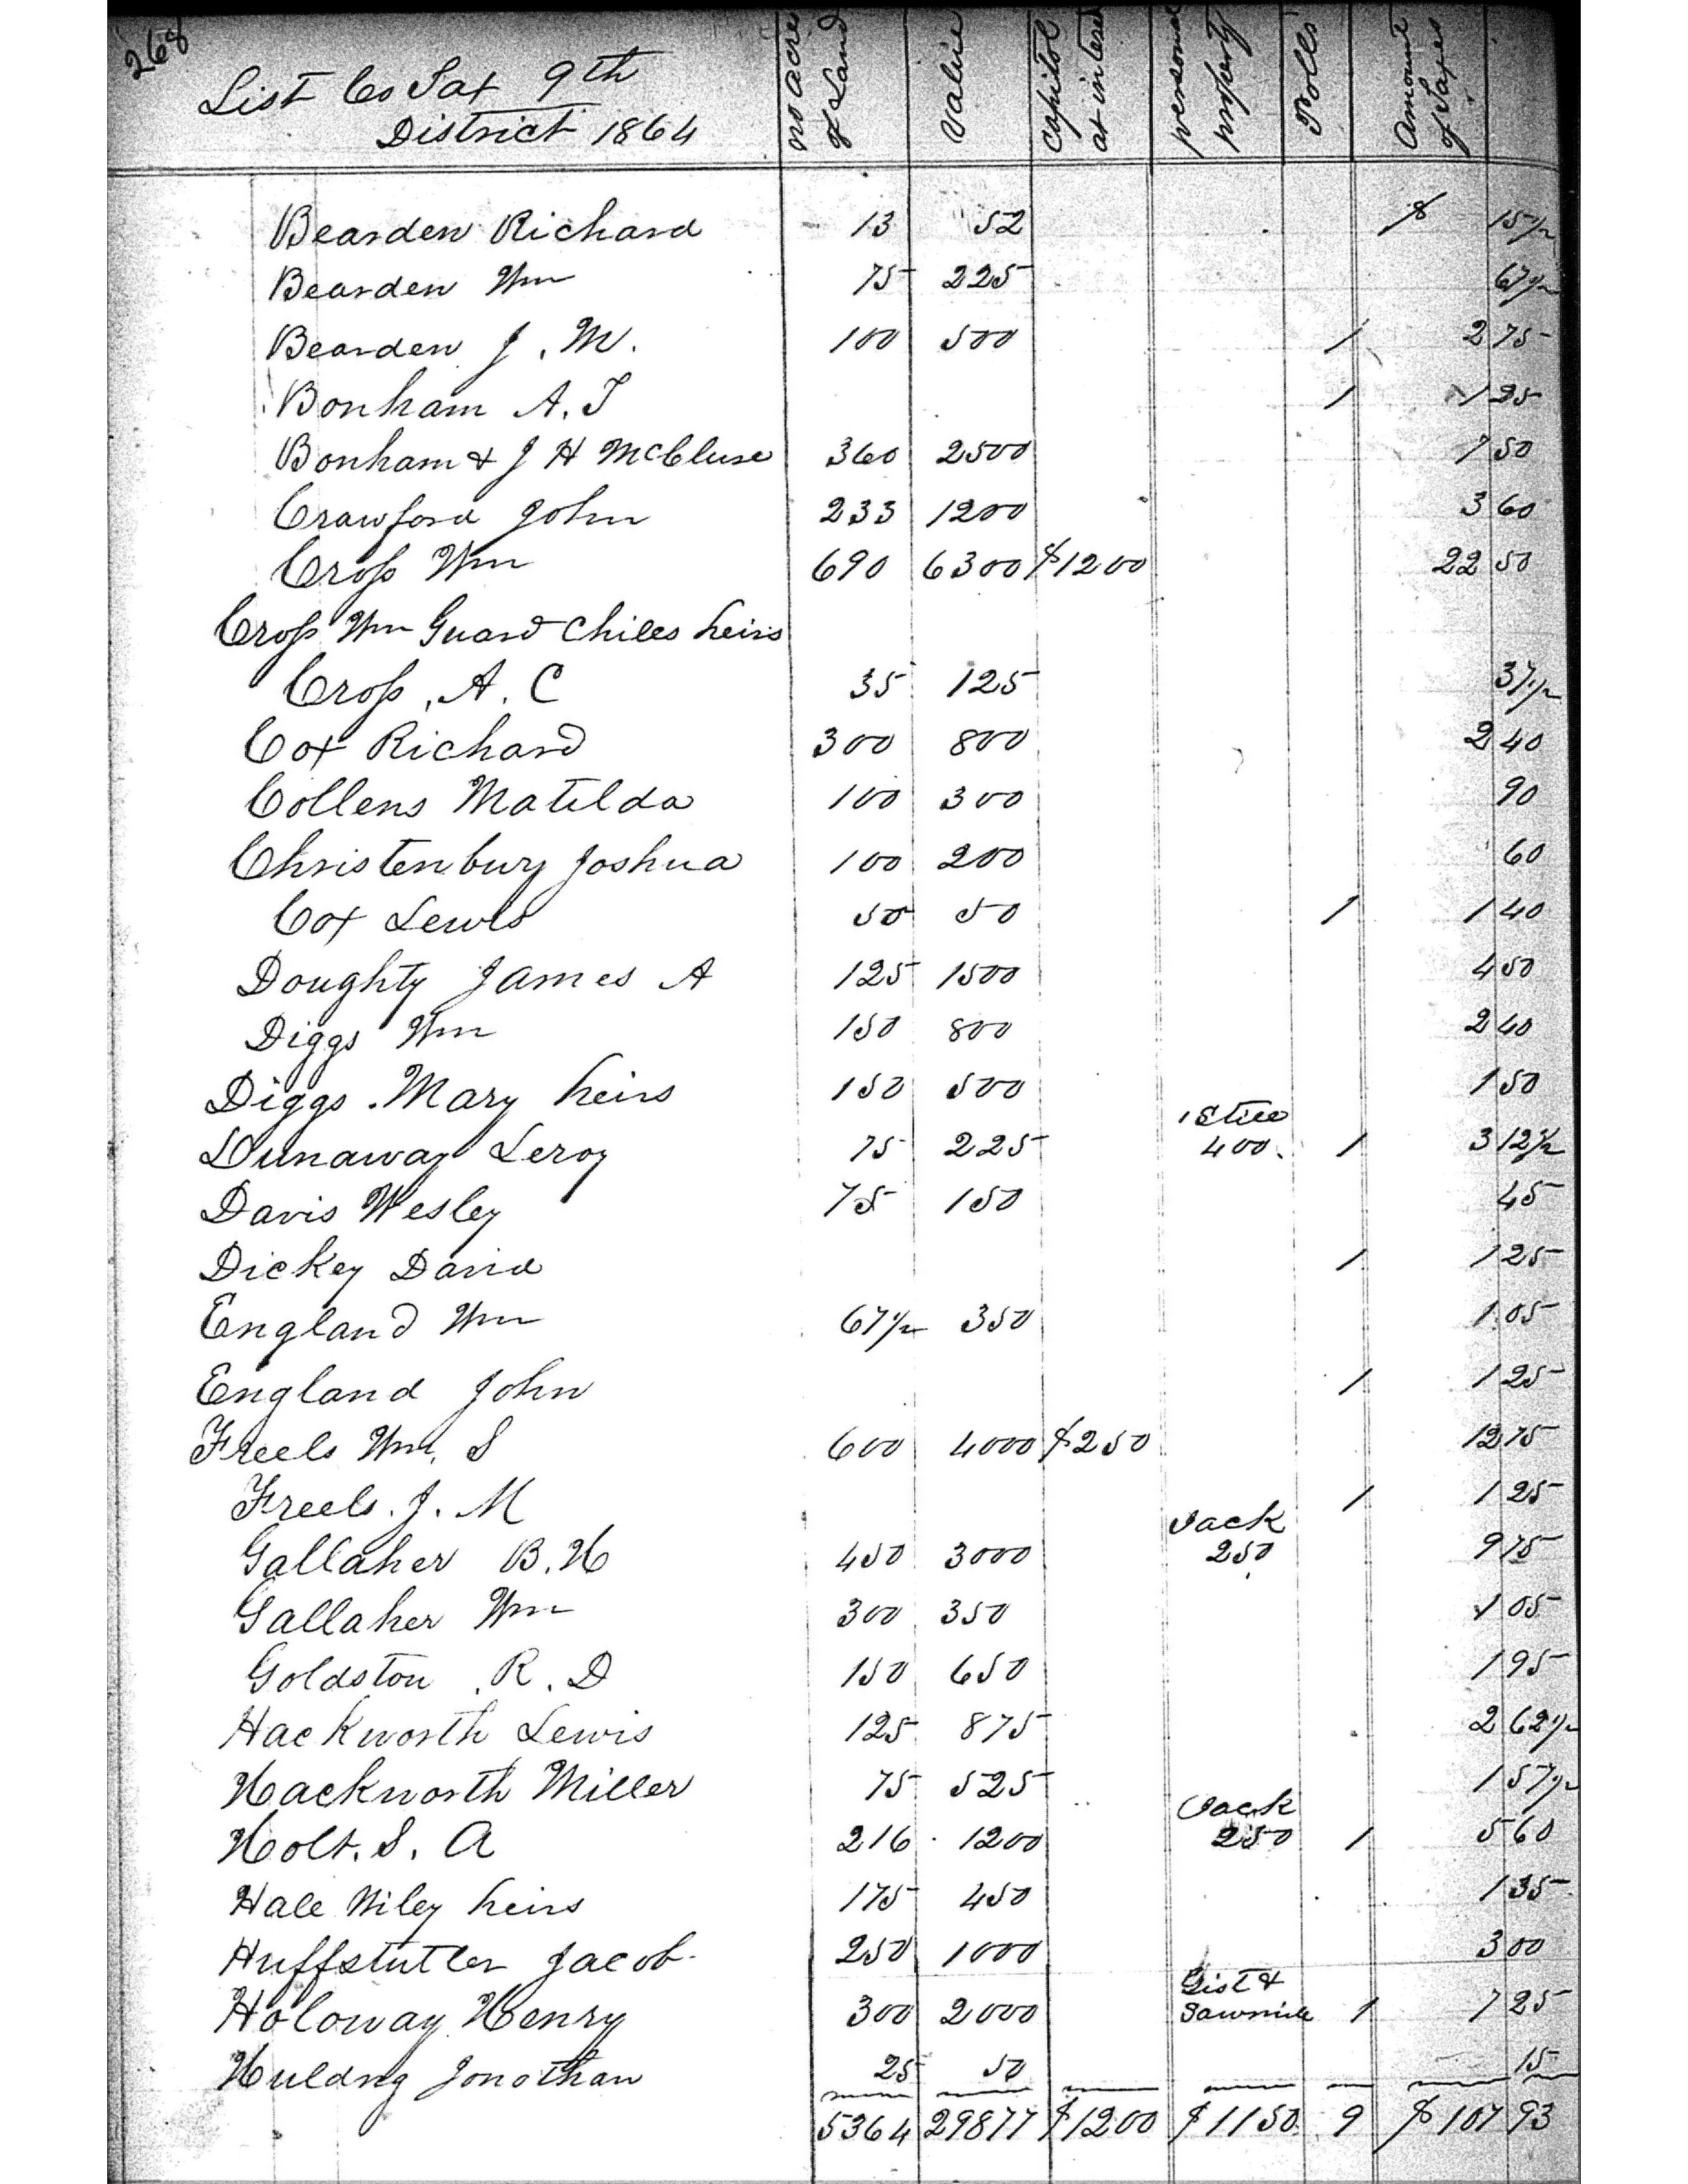 268
List Co Tax 9th
District 1864
no acres of Land Value Capitol at interest personal property Polls Amount of Taxes
Bearden Richard 13 52 $ 15½
Bearden Wm 75 225 67½
Bearden J. M. 100 500 1 2 75
Bonham A. T 1 1 25
Bonham & J H McClure 360 2500 7 50
Crawford John 233 1200 3 60
Cross Wm 690 6300 $1200 22 50
Cross Wm Guard Chiles heirs
Cross, A. C 35 125 37½
Cox Richard 300 800 2 40
Collens Matilda 100 300 90
Christenbury Joshua 100 200 60
Cox Lewis 50 50 1 1 40
Doughty James A 125 1500 4 50
Diggs Wm 150 800 2 40
Diggs. Mary heirs 150 500 1 50
1 Still
Dunaway Leroy 75 225 400. 1 3 12½
Davis Wesley 75 150 45
Dickey David 1 1 25
England Wm 67½ 350 1.05
England John 1 1 25
Freels Wm. S 600 4000 $250 12 75
Freels. J. M 1 1 25
Jack
Gallaher B. H 450 3000 250 9 75
Gallaher Wm 300 350 1 05
Goldston. R. D 150 650 1 95
Hackworth Lewis 125 875 2 62½
Hackworth Miller 75 525 1 57½
Jack
Holt. S. A 216 1200 250 1 5 60
Hale Wiley heirs 175 450 1 35
Huffstutler Jacob 250 1000 3 00
Gist &
Holoway Henry 300 2000 Sawmill 1 7 25
Huldng Jonothan 25 50 15
5364 29877 $1200 $1150 9 $107 93